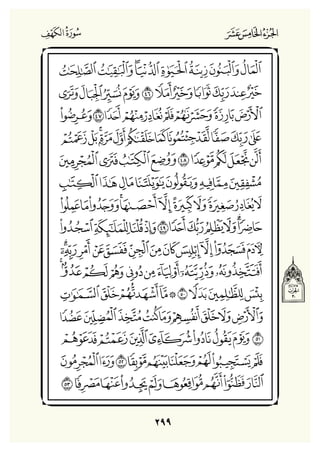 الجُزْءُ الخَامِسَ عَشَرَ سُورَةُ الكَهْفِ
ٱلْمَالُ وَٱلْبَنُونَ زِينَةُ ٱلْحَيَوٰةِ ٱلدُّنْيَا ۖ وَٱلْبَٰقِيَٰتُ ٱلصَّٰلِحَٰتُ
خَيْرٌ عِندَ رَبِّكَ ثَوَابًا وَخَيْرٌ أَمَلًا ٤٦ وَيَوْمَ نُسَيِّرُ ٱلْجِبَالَ وَتَرَى
ٱلْأَرْضَ بَارِزَةً وَحَشَرْنَٰهُمْ فَلَمْ نُغَادِرْ مِنْهُمْ أَحَدًا ٤٧ وَعُرِضُوا۟
عَلَىٰ رَبِّكَ صَفًّا لَّقَدْ جِئْتُمُونَا كَمَا خَلَقْنَٰكُمْ أَوَّلَ مَرَّةٍۭ ۚ بَلْ زَعَمْتُمْ
أَلَّن نَّجْعَلَ لَكُم مَّوْعِدًا ٤٨ وَوُضِعَ ٱلْكِتَٰبُ فَتَرَى ٱلْمُجْرِمِينَ
مُشْفِقِينَ مِمَّا فِيهِ وَيَقُولُونَ يَٰوَيْلَتَنَا مَالِ هَٰذَا ٱلْكِتَٰبِ
لَا يُغَادِرُ صَغِيرَةً وَلَا كَبِيرَةً إِلَّآ أَحْصَىٰهَا ۚ وَوَجَدُوا۟ مَا عَمِلُوا۟
حَاضِرًا ۗ وَلَا يَظْلِمُ رَبُّكَ أَحَدًا ٤٩ وَإِذْ قُلْنَا لِلْمَلَٰٓئِكَةِ ٱسْجُدُوا۟
لِـَٔادَمَ فَسَجَدُوٓا۟ إِلَّآ إِبْلِيسَ كَانَ مِنَ ٱلْجِنِّ فَفَسَقَ عَنْ أَمْرِ رَبِّهِۦٓ ۗ
أَفَتَتَّخِذُونَهُۥ وَذُرِّيَّتَهُۥٓ أَوْلِيَآءَ مِن دُونِى وَهُمْ لَكُمْ عَدُوٌّۢ ۚ
بِئْسَ لِلظَّٰلِمِينَ بَدَلًا ٥٠ ۞ مَّآ أَشْهَدتُّهُمْ خَلْقَ ٱلسَّمَٰوَٰتِ
وَٱلْأَرْضِ وَلَا خَلْقَ أَنفُسِهِمْ وَمَا كُنتُ مُتَّخِذَ ٱلْمُضِلِّينَ عَضُدًا
٥١ وَيَوْمَ يَقُولُ نَادُوا۟ شُرَكَآءِىَ ٱلَّذِينَ زَعَمْتُمْ فَدَعَوْهُمْ
فَلَمْ يَسْتَجِيبُوا۟ لَهُمْ وَجَعَلْنَا بَيْنَهُم مَّوْبِقًا ٥٢ وَرَءَا ٱلْمُجْرِمُونَ
ٱلنَّارَ فَظَنُّوٓا۟ أَنَّهُم مُّوَاقِعُوهَا وَلَمْ يَجِدُوا۟ عَنْهَا مَصْرِفًا ٥٣
٢٩٩